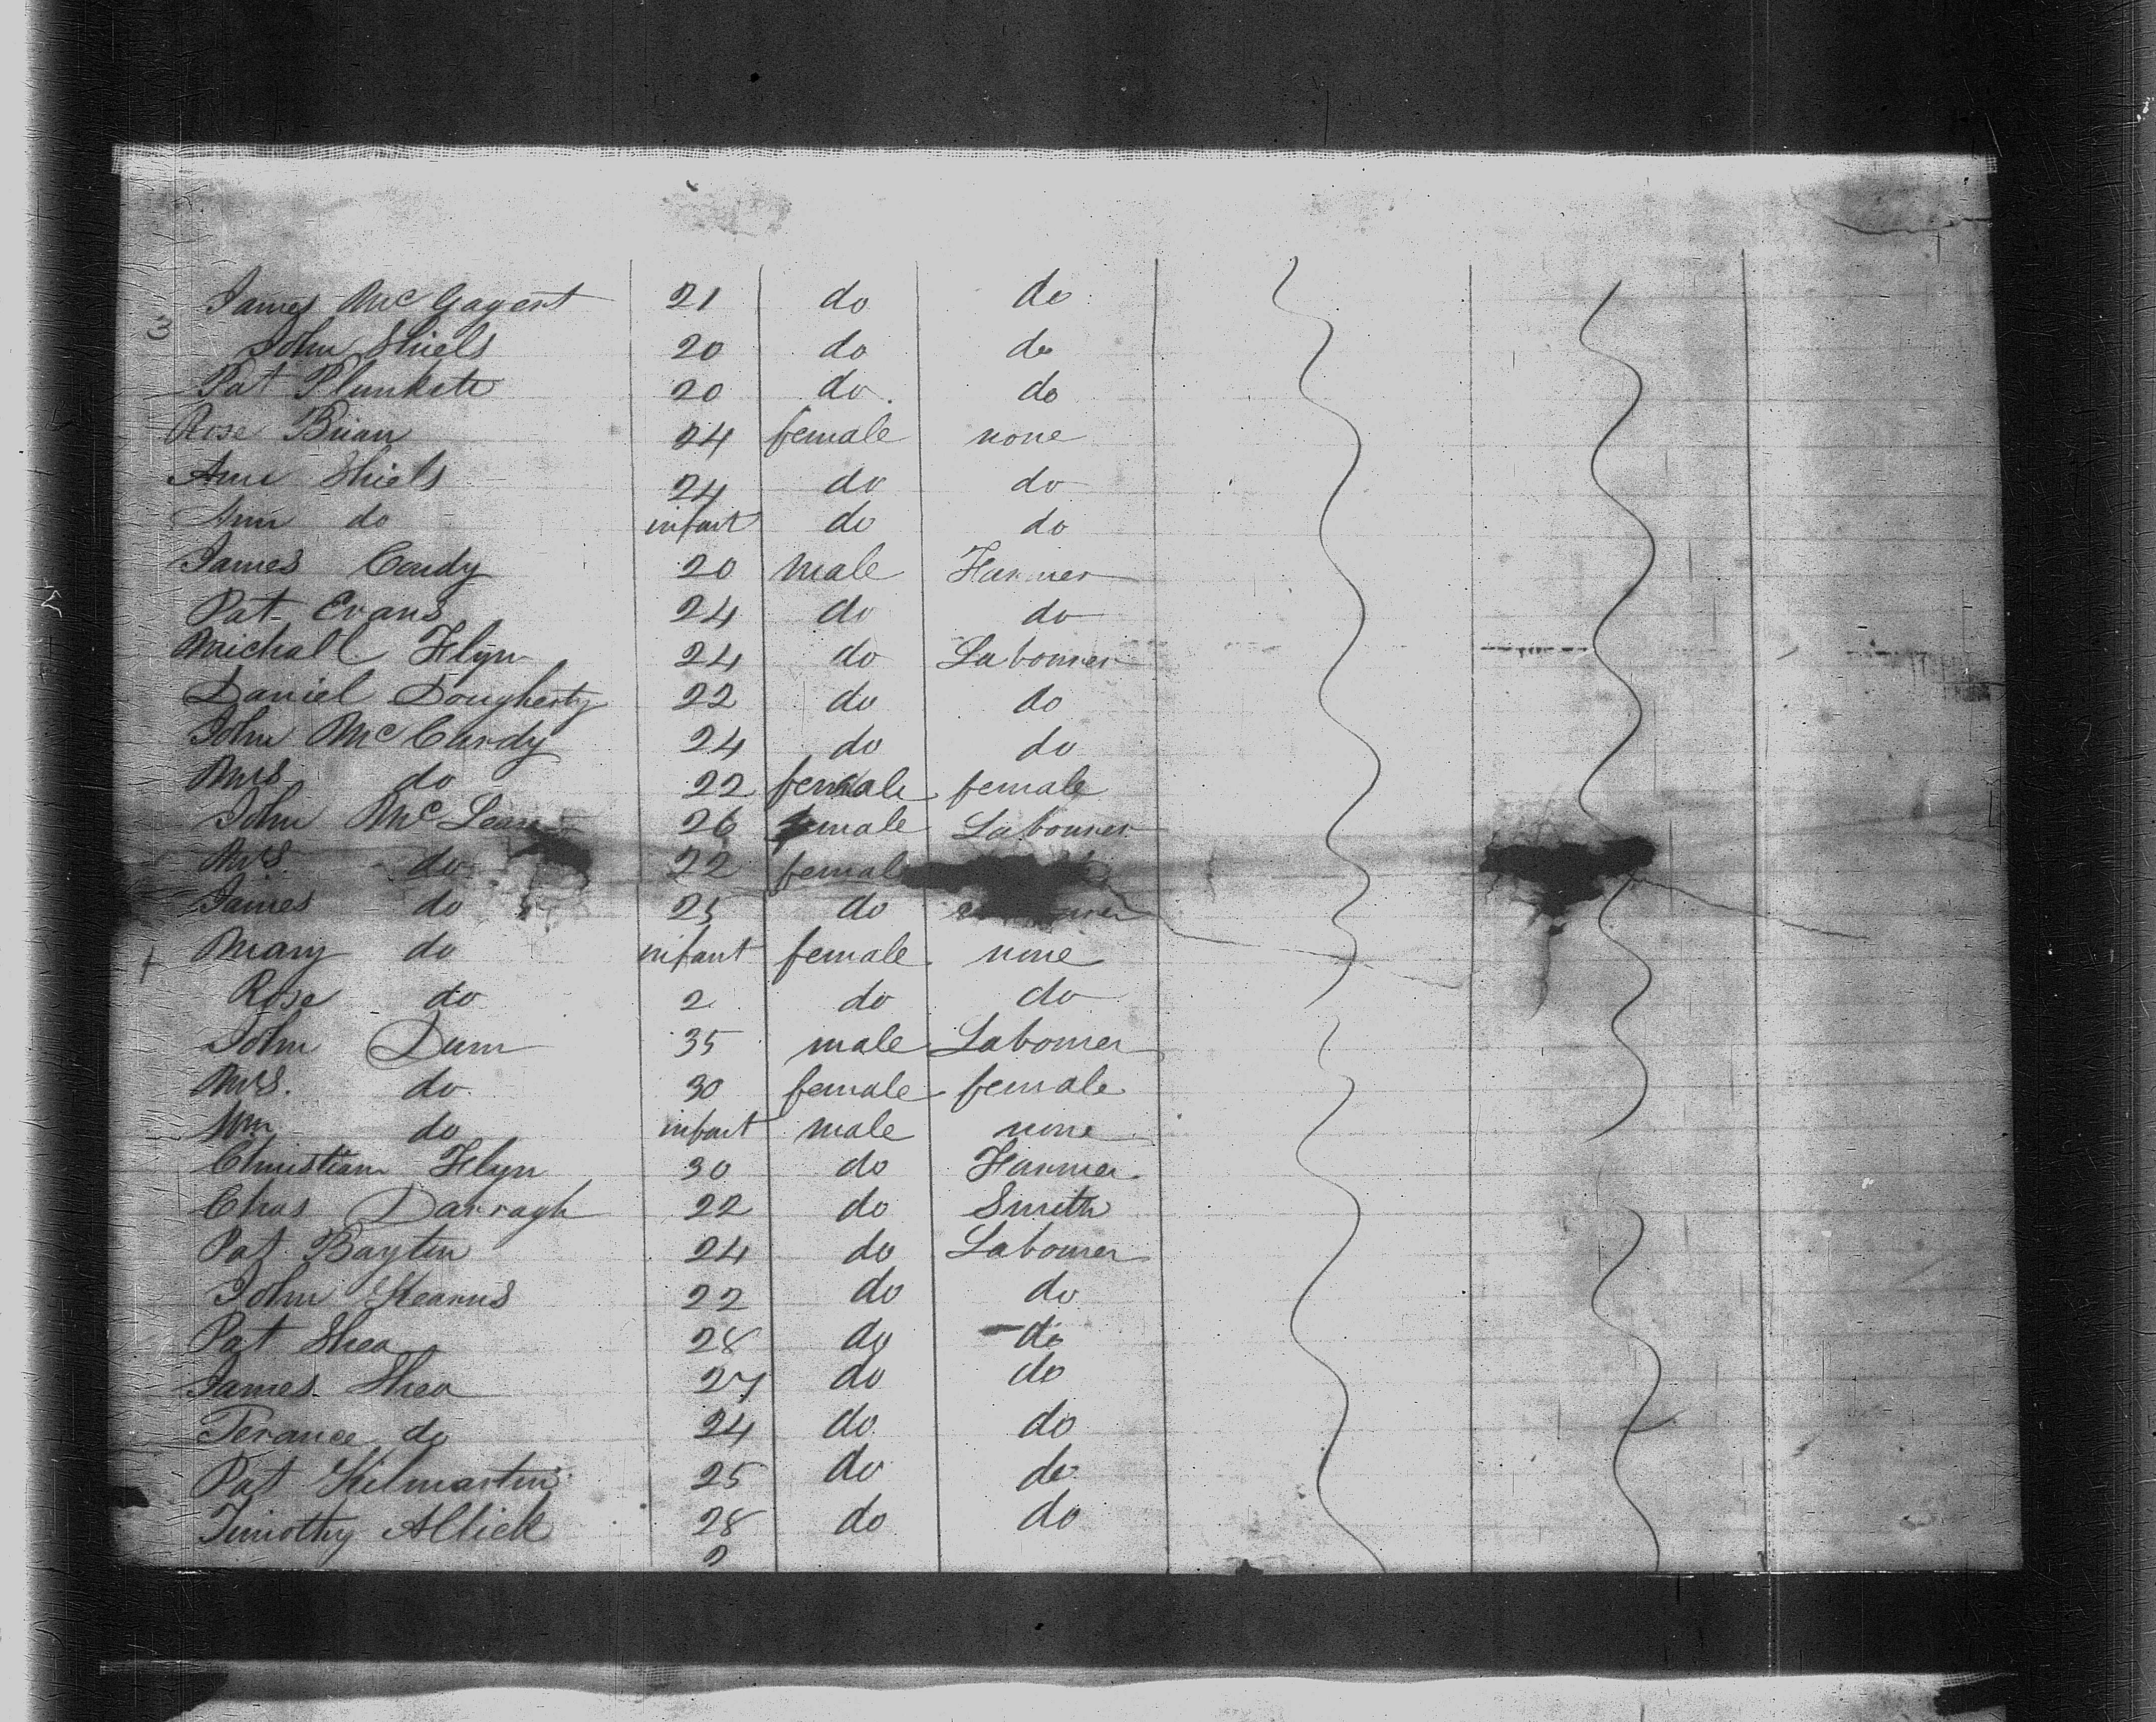 James McGagert 21 do do
3
John Shiels 20 do do
Pat Plunkett 20 do. do
Rose Brian 24 female none
Ann Shiels 24 do do
Ann do infant do do
James Condy 20 male Farmer
Pat Evans 24 do do
Michall Flyn 24 do Labourer
Daniel Dougherty 22 do do
John McCurdy 24 do do
Mrs do 22 female female
John McLean 26 male Labourer
Mrs do 22 female
James do 25 do
Mary do infant female none
Rose do 2 do do
John Dunn 35 male Labourer
Mrs. do 30 female female
Wm do infant male none
Christian Flyn 30 do Farmer
Chas Darragh 22 do Smith
Pat Baytin 24 do Labourer
John Kearns 22 do do
Pat Shea 28 do do
James Shea 27 do do
Terance do 24 do do
Pat Kilmartin 25 do do
Timothy 28 do do